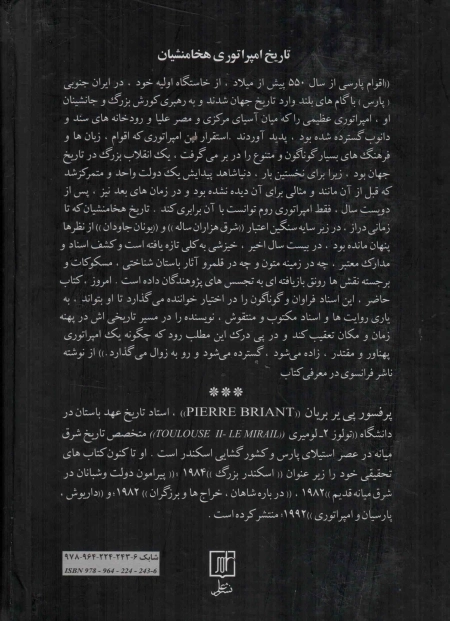 تاریخ امپراتوری هخامنشیان
((اقوام پارسی از سال ۵۵۰ پیش از میلاد ، از خاستگاه اولیه خود ، در ایران جنوبی
( پارس ) با گام های بلند وارد تاریخ جهان شدند و به رهبری کورش بزرگ و جانشینان
او ، امپراتوری عظیمی را که میان آسیای مرکزی و مصر علیا و رودخانه های سند و
دانوب گسترده شده بود ، پدید آوردند .استقرار این امپراتوری که اقوام ، زبان ها و
فرهنگ های بسیار گوناگون و متنوع را در بر می گرفت ، یک انقلاب بزرگ در تاریخ
جهان بود ، زیرا برای نخستین بار ، دنیا شاهد پیدایش یک دولت واحد و متمرکز شد
که قبل از آن مانند و مثالی برای آن دیده نشده بود و در زمان های بعد نیز ، پس از
دویست سال ، فقط امپراتوری روم توانست با آن برابری کند . تاریخ هخامنشیان که تا
زمانی دراز ، در زیر سایه سنگین اعتبار ((شرق هزاران ساله )) و ((یونان جاودان )) از نظرها
پنهان مانده بود ، در بیست سال اخیر ، خیزشی به کلی تازه یافته است و کشف اسناد و
مدارک معتبر ، چه در زمینه متون و چه در قلمرو آثار باستان شناختی ، مسکوکات و
برجسته نقش ها رونق بازیافته ای به تجسس های پژوهندگان داده است . امروز ، کتاب
حاضر ، این اسناد فراوان و گوناگون را در اختیار خواننده می گذارد تا او بتواند ، به
یاری روایت ها و اسناد مکتوب و منقوش ، نویسنده را در مسیر تاریخی اش در پهنه
زمان و مکان تعقیب کند و در پی درک این مطلب رود که چگونه یک امپراتوری
پهناور و مقتدر ، زاده می شود ، گسترده می شود و رو به زوال می گذارد.)) از نوشته
ناشر فرانسوی در معرفی کتاب
***
پرفسور پی یر بریان ((PIERRE BRIANT)) ، استاد تاریخ عهد باستان در
دانشگاه ((تولوز ۲ـ لومیری ((TOULOUSE II- LE MIRAIL)) متخصص تاریخ شرق
میانه در عصر استیلای پارس و کشور گشایی اسکندر است . او تا کنون کتاب های
تحقیقی خود را زیر عنوان (( اسکندر بزرگ ))۱۹۸۴ ؛(( پیرامون دولت وشبانان در
شرق میانه قدیم ))۱۹۸۲ ، (( در باره شاهان ، خراج ها و برزگران )) ۱۹۸۲ ؛و ((داریوش ،
پارسیان و امپراتوری ))۱۹۹۲؛ منتشر کرده است .
شابک ۶-۲۴۳-۲۲۴-۹۶۴-۹۷۸
ISBN 978 - 964 - 224 - 243-6
نشر علم